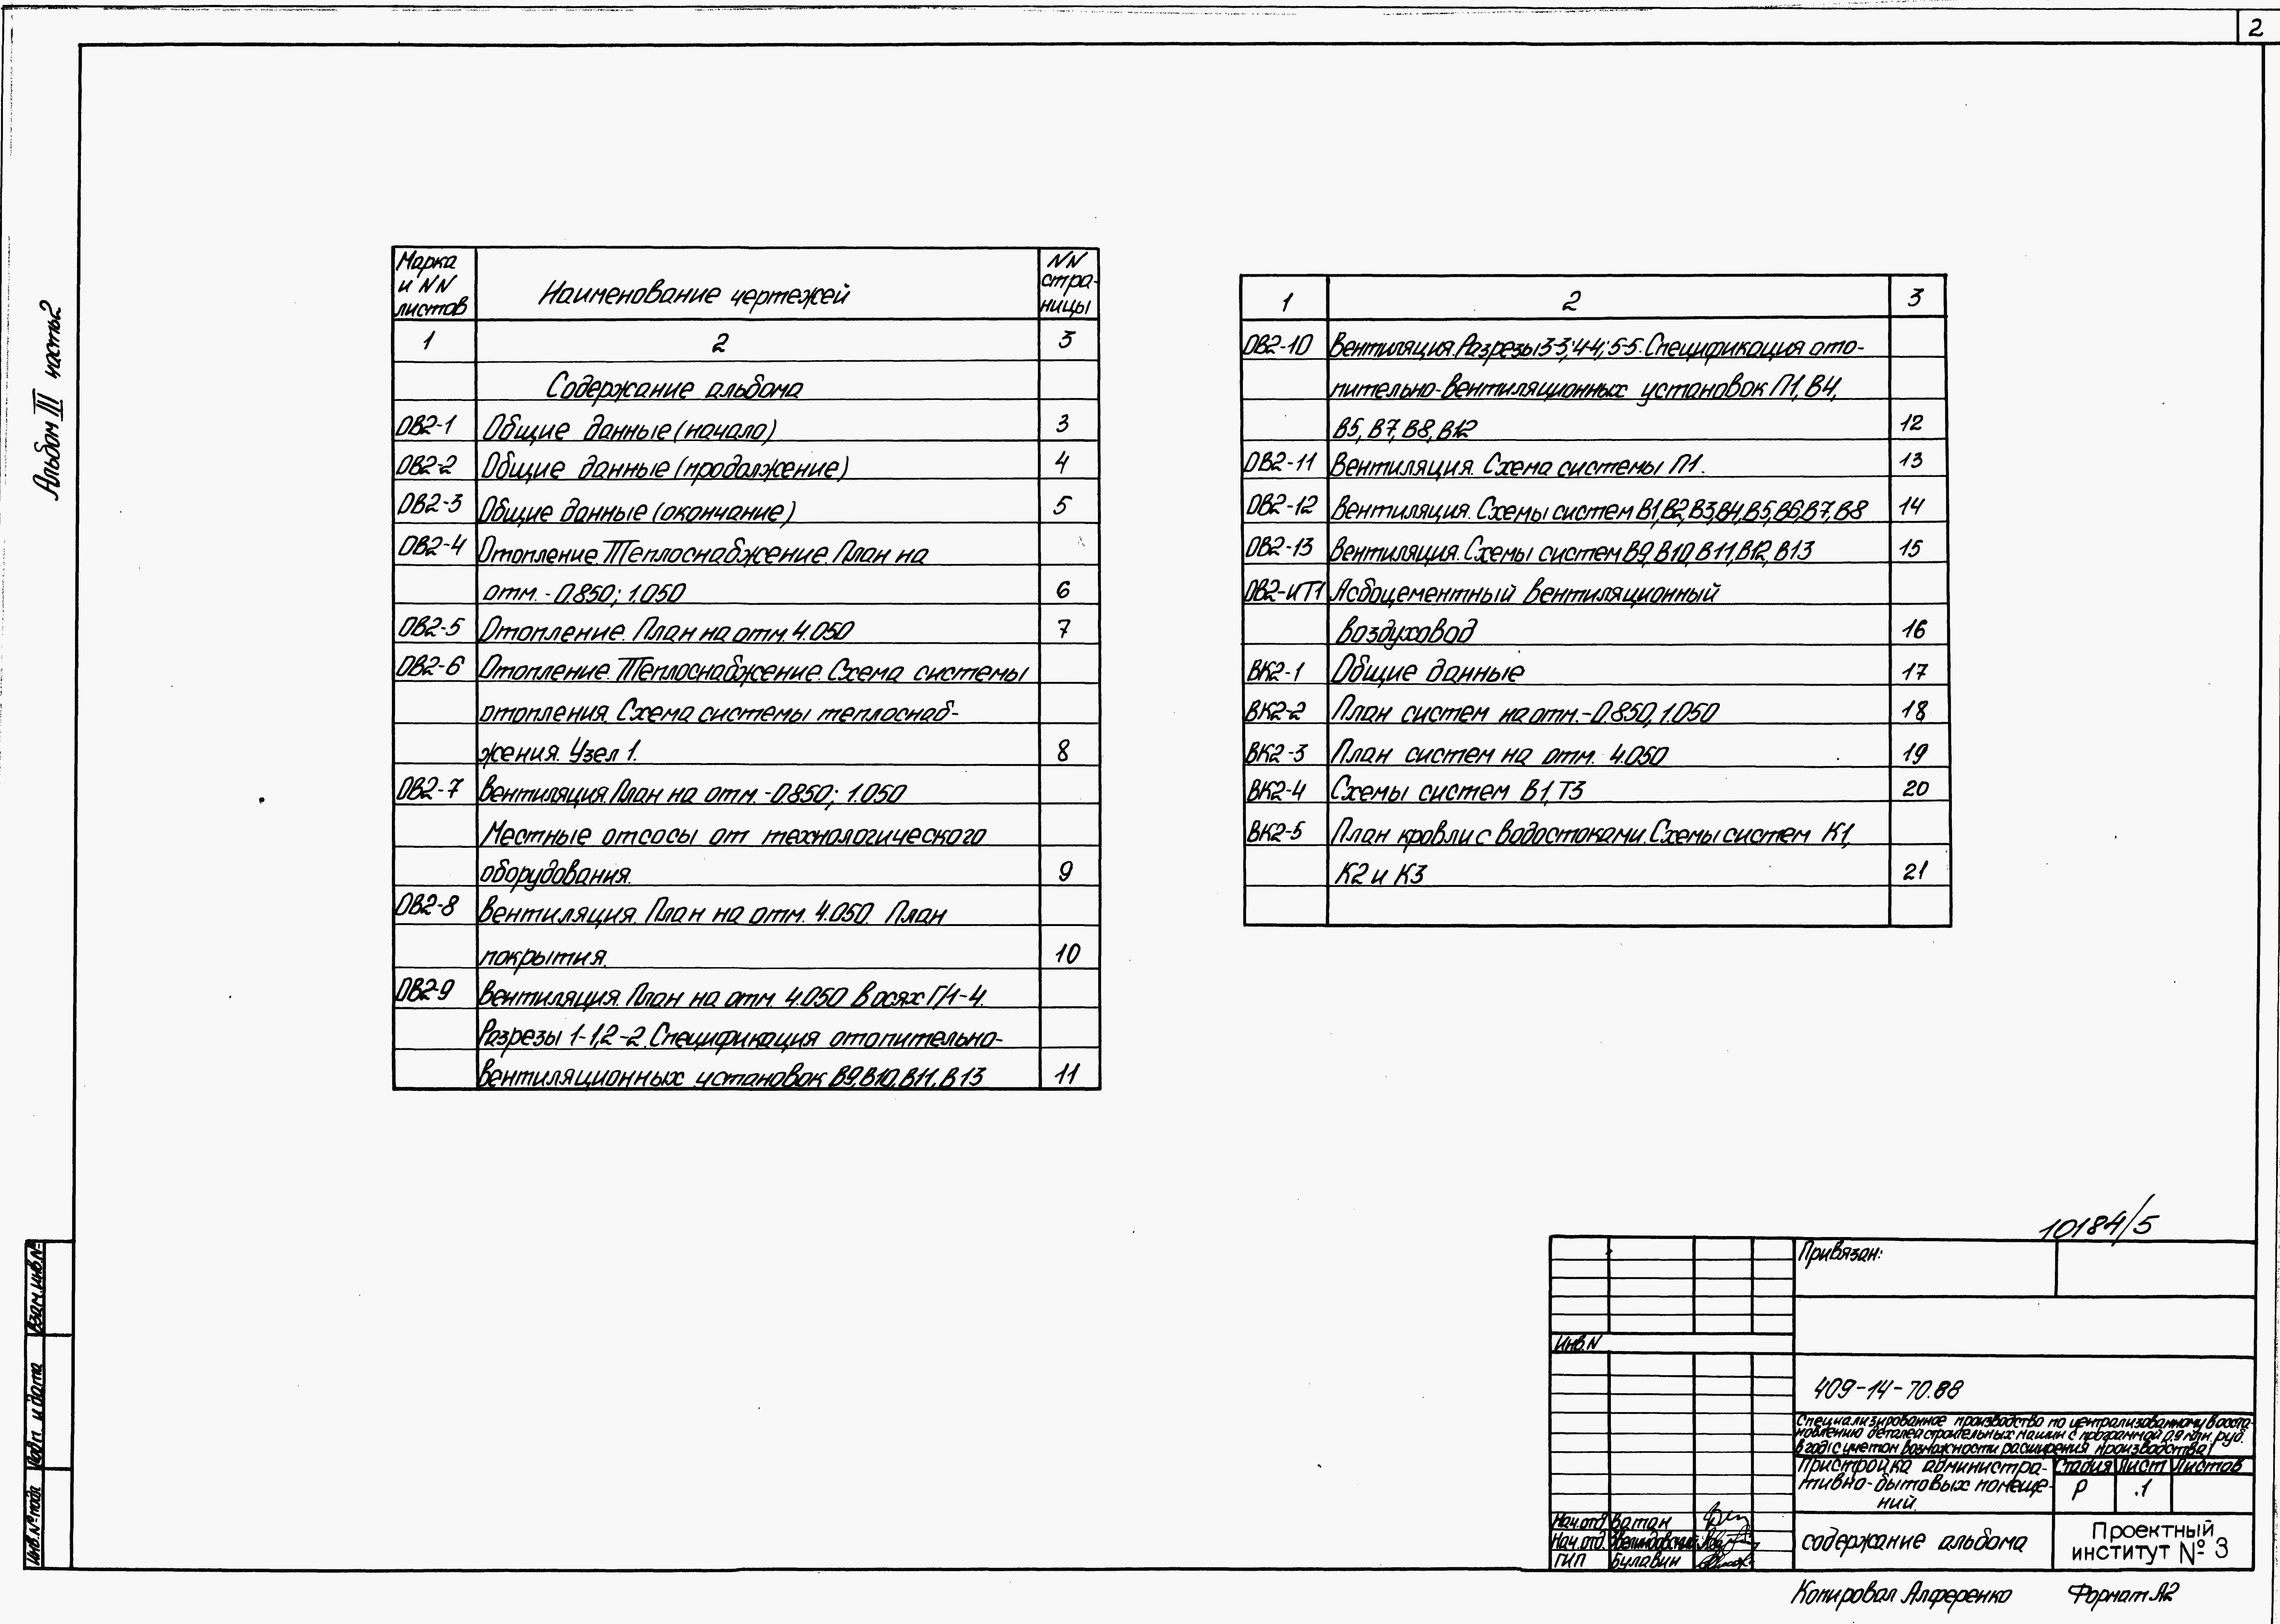 2
Альбом III часть 2
Марка и NN листов
Наименование чертежей
NN стра-ницы
1 2 3
Содержание альбома
ОВ2-1 Общие данные (начало) 3
ОВ2-2 Общие данные (продолжение) 4
ОВ2-3 Общие данные (окончание) 5
ОВ2-4 Отопление. Теплоснабжение. План на
отм. -0.850; 1.050 6
ОВ2-5 Отопление. План на отм. 4.050 7
ОВ2-6 Отопление. Теплоснабжение. Схема системы
отопления. Схема системы теплоснаб-
жения. Узел 1. 8
ОВ2-7 Вентиляция. План на отм. -0.850; 1.050
Местные отсосы от технологического
оборудования. 9
ОВ2-8 Вентиляция. План на отм. 4.050. План
покрытия. 10
ОВ2-9 Вентиляция. План на отм. 4.050 в осях Г/1-4.
Разрезы 1-1, 2-2. Спецификация отопительно-
вентиляционных установок В9, В10, В11, В13 11
1 2 3
ОВ2-10 Вентиляция. Разрезы 3-3; 4-4; 5-5. Спецификация ото-
пительно-вентиляционных установок П1, В4,
В5, В7, В8, В12 12
ОВ2-11 Вентиляция. Схема системы П1. 13
ОВ2-12 Вентиляция. Схемы систем В1, В2, В3, В4, В5, В6, В7, В8 14
ОВ2-13 Вентиляция. Схемы систем В9, В10, В11, В12, В13 15
ОВ2-ИТ1 Асбоцементный вентиляционный
воздуховод 16
ВК2-1 Общие данные 17
ВК2-2 План систем на отм. -0.850, 1.050 18
ВК2-3 План систем на отм. 4.050 19
ВК2-4 Схемы систем В1, Т3 20
ВК2-5 План кровли с водостоками. Схемы систем К1,
К2 и К3 21
10184/5
Привязан:
Инв.N
409-14-70.88
Специализированное производство по централизованному восста-
новлению деталей строительных машин с программой 0.9 млн. руб.
в год (с учетом возможности расширения производства)
Пристройка администра-
тивно-бытовых помеще-
ний.
Стадия Лист Листов
Р 1
Нач.отд Ватан
Нач.отд.
ГИП Булавин
содержание альбома
Проектный
институт № 3
Копировал Алференко Формат А2
Взам.инв.№
Подп. и дата
Инв.№ подл